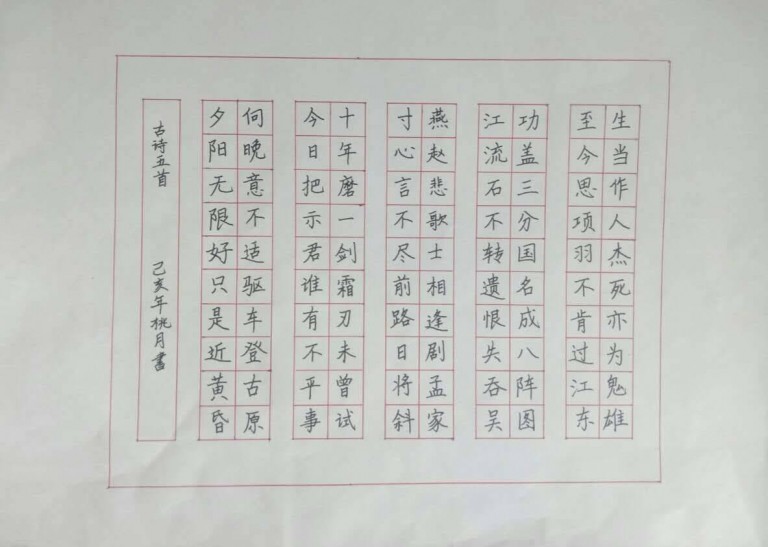 生当作人杰死亦为鬼雄
至今思项羽不肯过江东
功盖三分国名成八阵图
江流石不转遗恨失吞吴
燕赵悲歌士相逢剧孟家
寸心言不尽前路日将斜
十年磨一剑霜刃未曾试
今日把示君谁有不平事
向晚意不适驱车登古原
夕阳无限好只是近黄昏
古诗五首 己亥年桃月書